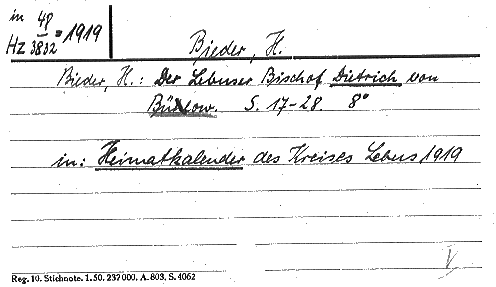 in 48
Hz 3832 = 1919
Bieder, H.
Bieder, H.: Der Lebuser Bischof Dietrich von
Bülow. S. 17-28. 8°
in: Heimatkalender des Kreises Lebus, 1919
V
Reg. 10. Stichnote. 1. 50. 237000. A. 803. S. 4062